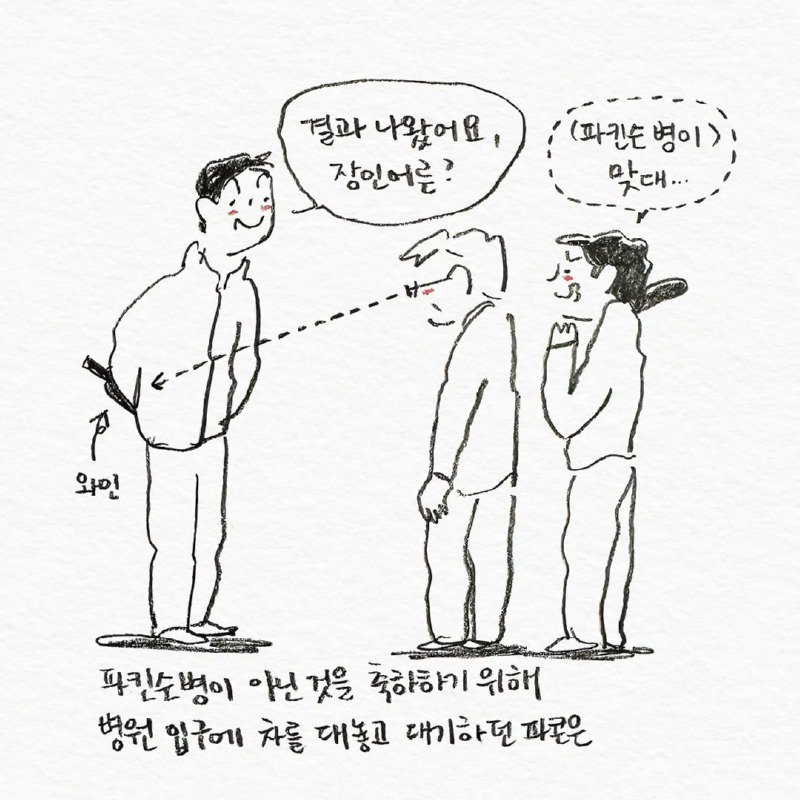 결과 나왔어요,
장인어른?
(파킨슨병이)
맞대...
와인
파킨슨병이 아닌 것을 축하하기 위해
병원 입구에 차를 대놓고 대기하던 파콘은